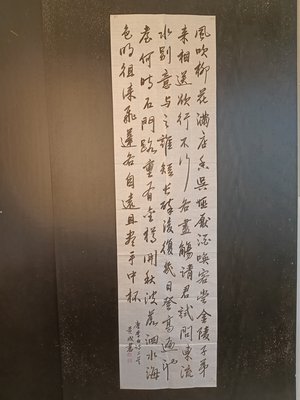 風吹柳花滿店香吳姬壓酒喚客嘗金陵子弟
來相送欲行不行各盡觴請君試問東流
水別意與之誰短長醉復幾日登高遍池
臺何時石門路重有金樽開秋波落泗水海
色明徂徠飛蓬各自遠且盡手中杯
唐李白詩二首
書